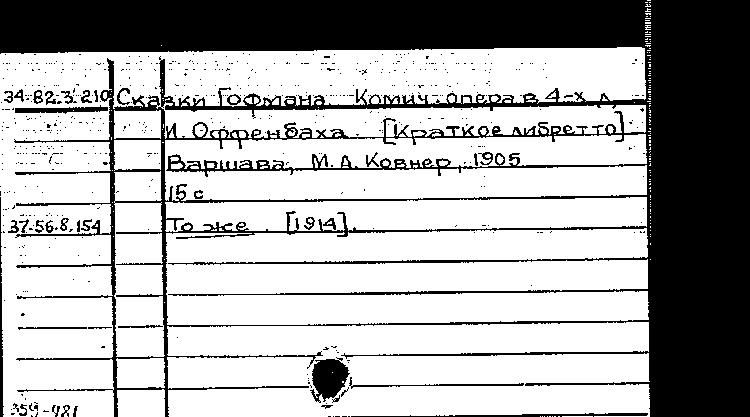 34-82.3.210 Сказки Гофмана. Комич. опера в 4-х д.
И. Оффенбаха. [Краткое либретто]
Варшава, М.А. Ковнер, 1905
15 с
37-56.8.154 То же. [1914].
359-481